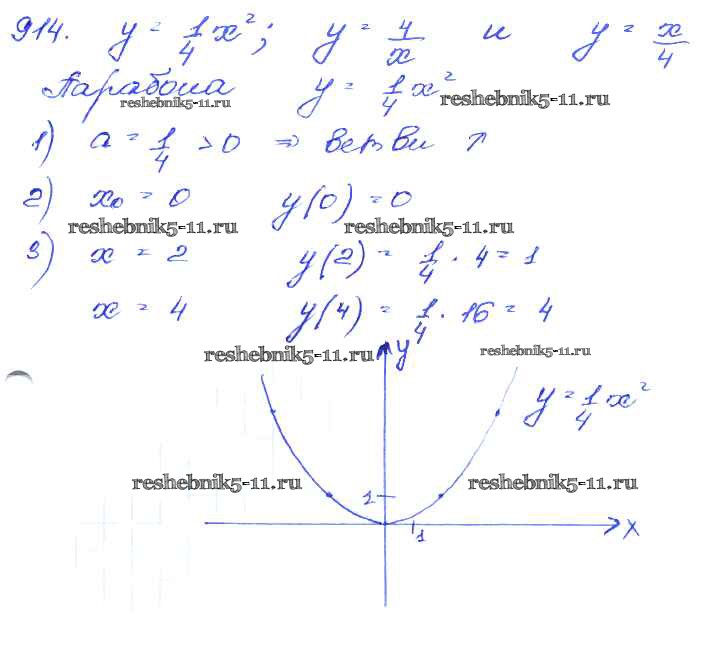 914. y = 1/4 x²; y = 4/x и y = x/4
Парабола y = 1/4 x²
reshebnik5-11.ru reshebnik5-11.ru
1) a = 1/4 > 0 ⇒ ветви ↑
2) x₀ = 0 y(0) = 0
reshebnik5-11.ru reshebnik5-11.ru
3) x = 2 y(2) = 1/4 · 4 = 1
x = 4 y(4) = 1/4 · 16 = 4
reshebnik5-11.ru y reshebnik5-11.ru
y = 1/4 x²
reshebnik5-11.ru reshebnik5-11.ru
1
1 x